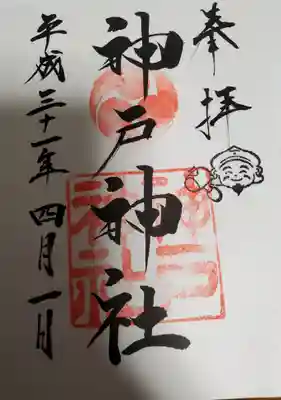 奉拝
神戸神社
平成三十一年四月一日
神戸神社